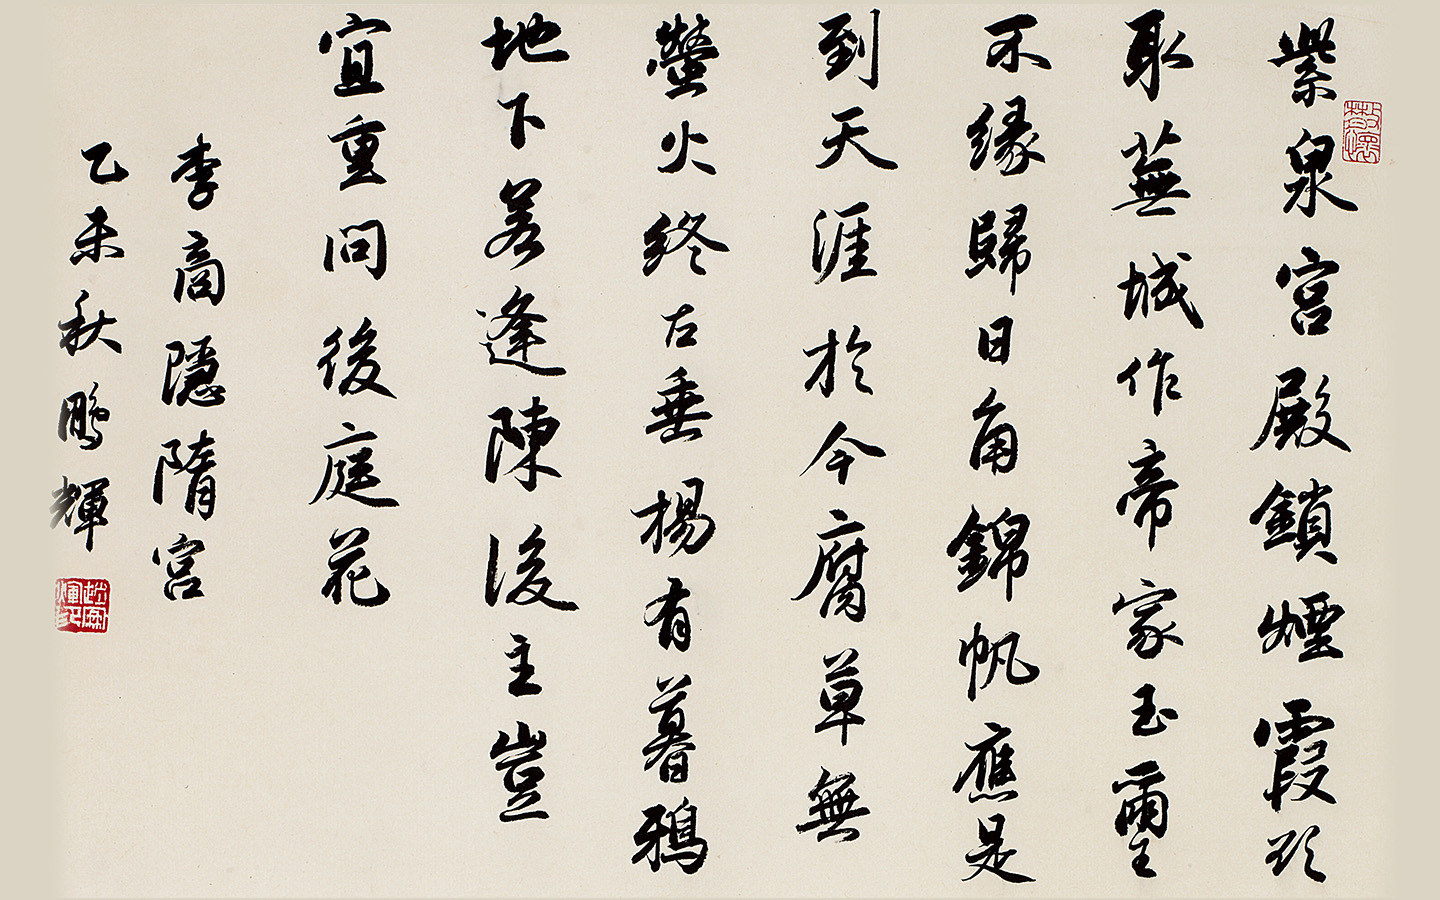 紫泉宮殿鎖煙霞欲
取蕪城作帝家玉璽
不緣歸日角錦帆應是
到天涯於今腐草無
螢火終古垂楊有暮鴉
地下若逢陳後主豈
宜重問後庭花
李商隱隋宮
乙未秋鵬輝